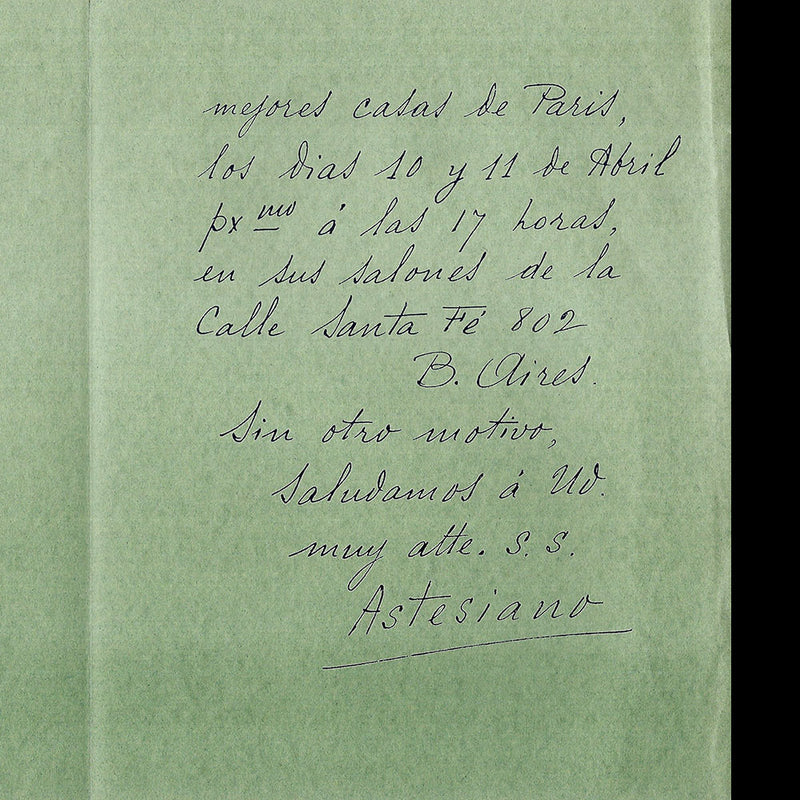 mejores casas de Paris,
los dias 10 y 11 de Abril
pxmo á las 17 horas,
en sus salones de la
Calle Santa Fé 802
B. Aires.
Sin otro motivo,
saludamos á Ud.
muy atte. s. s.
Astesiano